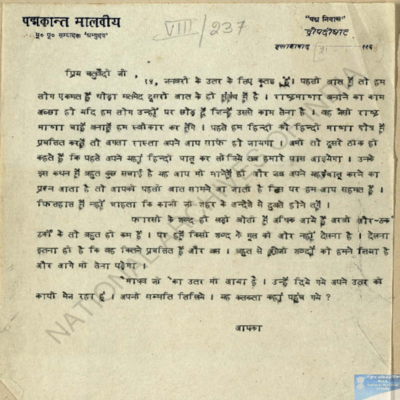 पद्मकान्त मालवीय
भू० पू० सम्पादक "अभ्युदय"
VIII/237
"पद्म निवास"
इलाहाबाद
प्रिय चतुर्वेदी जी,
१४ जनवरी के उत्तर के लिए कृतज्ञ हूँ। पहली बात में तो हम
लोग एकमत हैं थोड़ा मतभेद दूसरी बात के ही संबंध में है। राष्ट्रभाषा बनाने का काम
अच्छा हो यदि हम लोग उन्हीं पर छोड़ दें जिन्हें उससे काम लेना है। वह जैसी राष्ट्र
भाषा चाहें बनायें हम स्वीकार कर लेंगे। पहले हम हिन्दी को हिन्दी भाषा क्षेत्र में
प्रचलित करें तो अपना रास्ता अपने आप साफ हो जायगा। अभी तो दूसरे ठीक ही
कहते हैं कि पहले अपने यहां हिन्दी चालू कर लो तब हमारे पास आइयेगा। उनके
इस कथन में बहुत कुछ सचाई है यह आप भी मानेंगे ही और जब अपने यहां चालू करने का
प्रश्न आता है तो आपकी पहली बात सामने आ जाती है जिस पर हम आप सहमत हैं।
फिलहाल मैं नहीं चाहता कि काजी जी शहर के अन्देशे से दुबले होने लगें।
फारसी के शब्द ही नहीं बोली में अधिक आये हैं अरबी और
के तो बहुत ही कम हैं। पर हमें किसी शब्द के मूल को और नहीं देखना है। देखना
इतना ही है कि वह कितने प्रचलित हैं और बस। बहुत से अंग्रेजी शब्दों को हमने लिया है
और आगे भी लेना पड़ेगा।
जी का उत्तर भी आया है। उन्हें दिये गये अपने उत्तर की
कापी भेज रहा हूं। अपनी सम्मति लिखिये। यह कलकत्ता कहां पहुंच गये?
आपका